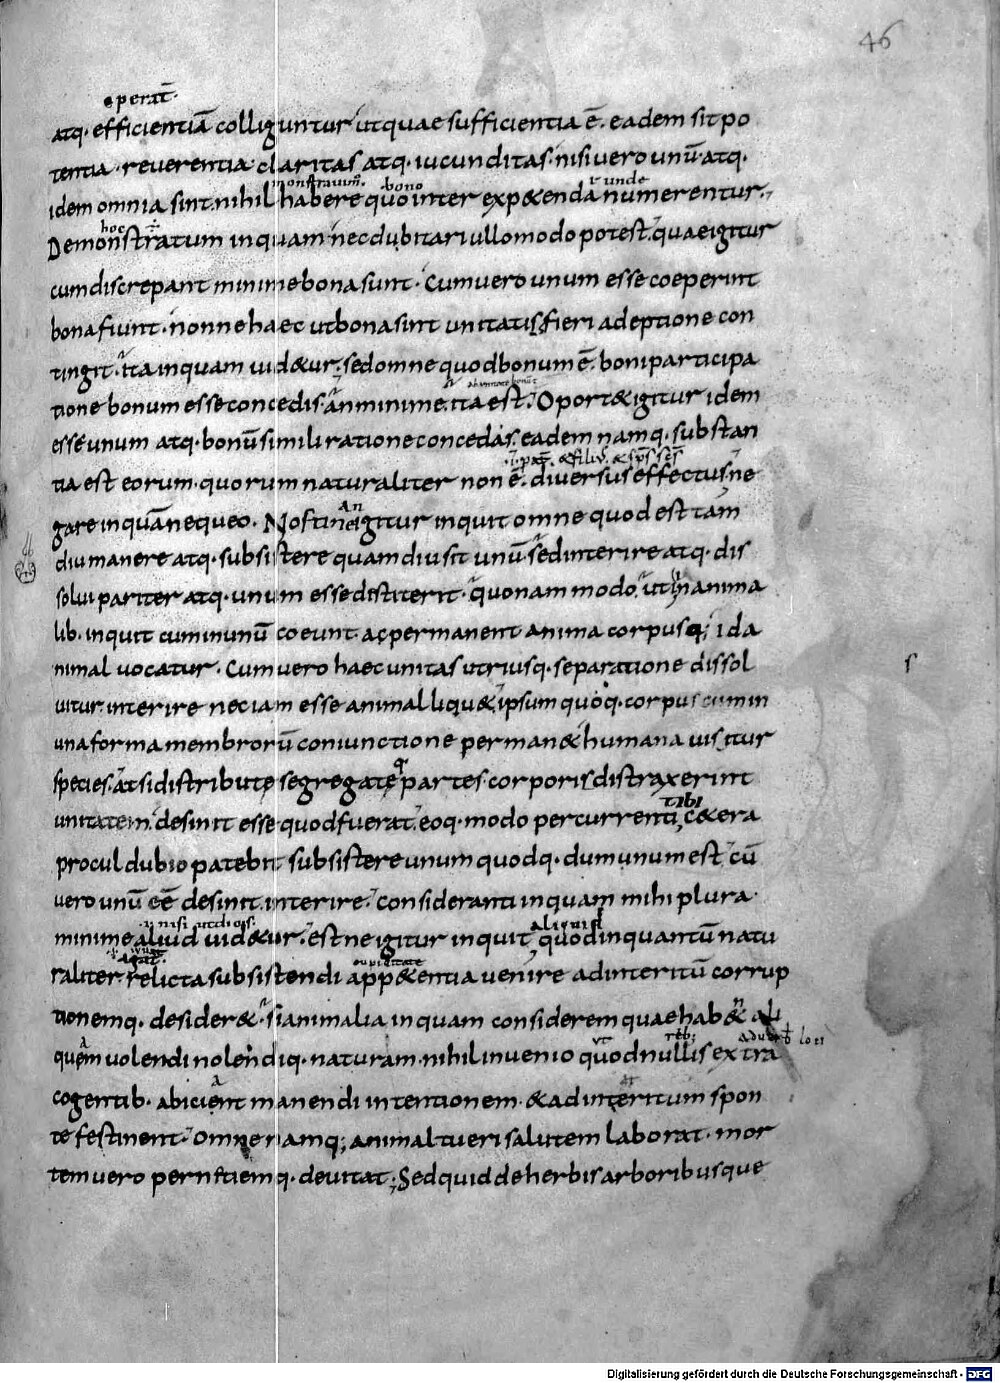 46
operat̄.
atq· efficientiā colliguntur ut quae sufficientia ē. eadem sit po
tentia · reverentia claritas atq· iucunditas · nisi vero unū atq·
monstravim̄. bono unde
idem omnia sint. nihil habere quo inter exp&enda numerentur.
hoc
Demonstratum inquam nec dubitari ullo modo potest. quae igitur
cum discrepant minime bona sunt · Cum vero unum esse coeperint
bona fiunt · nonne haec ut bona sint unitatis fieri adeptione con
tingit · ita inquam vid&ur; sed omne quod bonum ē. boni participa
tione bonum esse concedis an minime. ita est; Oport&igitur idem
esse unum atq· bonū simili ratione concedas. eadem namq· substan
pat̄. & filii. & sp̄s sc̄s
tia est eorum · quorum naturaliter non ē. diversus effectus; ne
An
gare inquā nequeo. Nostine igitur inquit omne quod est tam
diu manere atq· subsistere quamdiu sit unū. sed interire atq· dis
solui pariter atq· unum esse destiterit · quonam modo. ut in anima
lib· inquit cum in unū coeunt · ac permanent anima corpusq; id a
nimal vocatur · Cum vero haec unitas utriusq· separatione dissol
vitur. interire nec iam esse animal liqu& ipsum quoq· corpus cum in
una forma membrorū coniunctione perman& humana visitur
species. at si distributę segregatę partes corporis distraxerint
tibi
unitatem. desinit esse quod fuerat. eoq· modo percurrenti c&era
procul dubio patebit subsistere unum quodq· dum unum est. cū
vero unū eē desinit. interire. consideranti inquam mihi plura ·
nisi ut dicis. aliquid
minime aliud vid&ur. estne igitur inquit quod inquantū natu
cupiditate
raliter. relicta subsistendi app&entia venire ad interitū corrup
tionemq· desider& · si animalia inquam considerem quae hab& ali
ut reb;
quem volendi nolendiq· naturam · nihil invenio quod nullis extra
cogentib· abiciant manendi intentionem · & ad interitum spon
te festinent · Omne namq; animal tueri salutem laborat · mor
tem vero perniciemq· devitat; Sed quid de herbis arboribusque
s
Digitalisierung gefördert durch die Deutsche Forschungsgemeinschaft - DFG